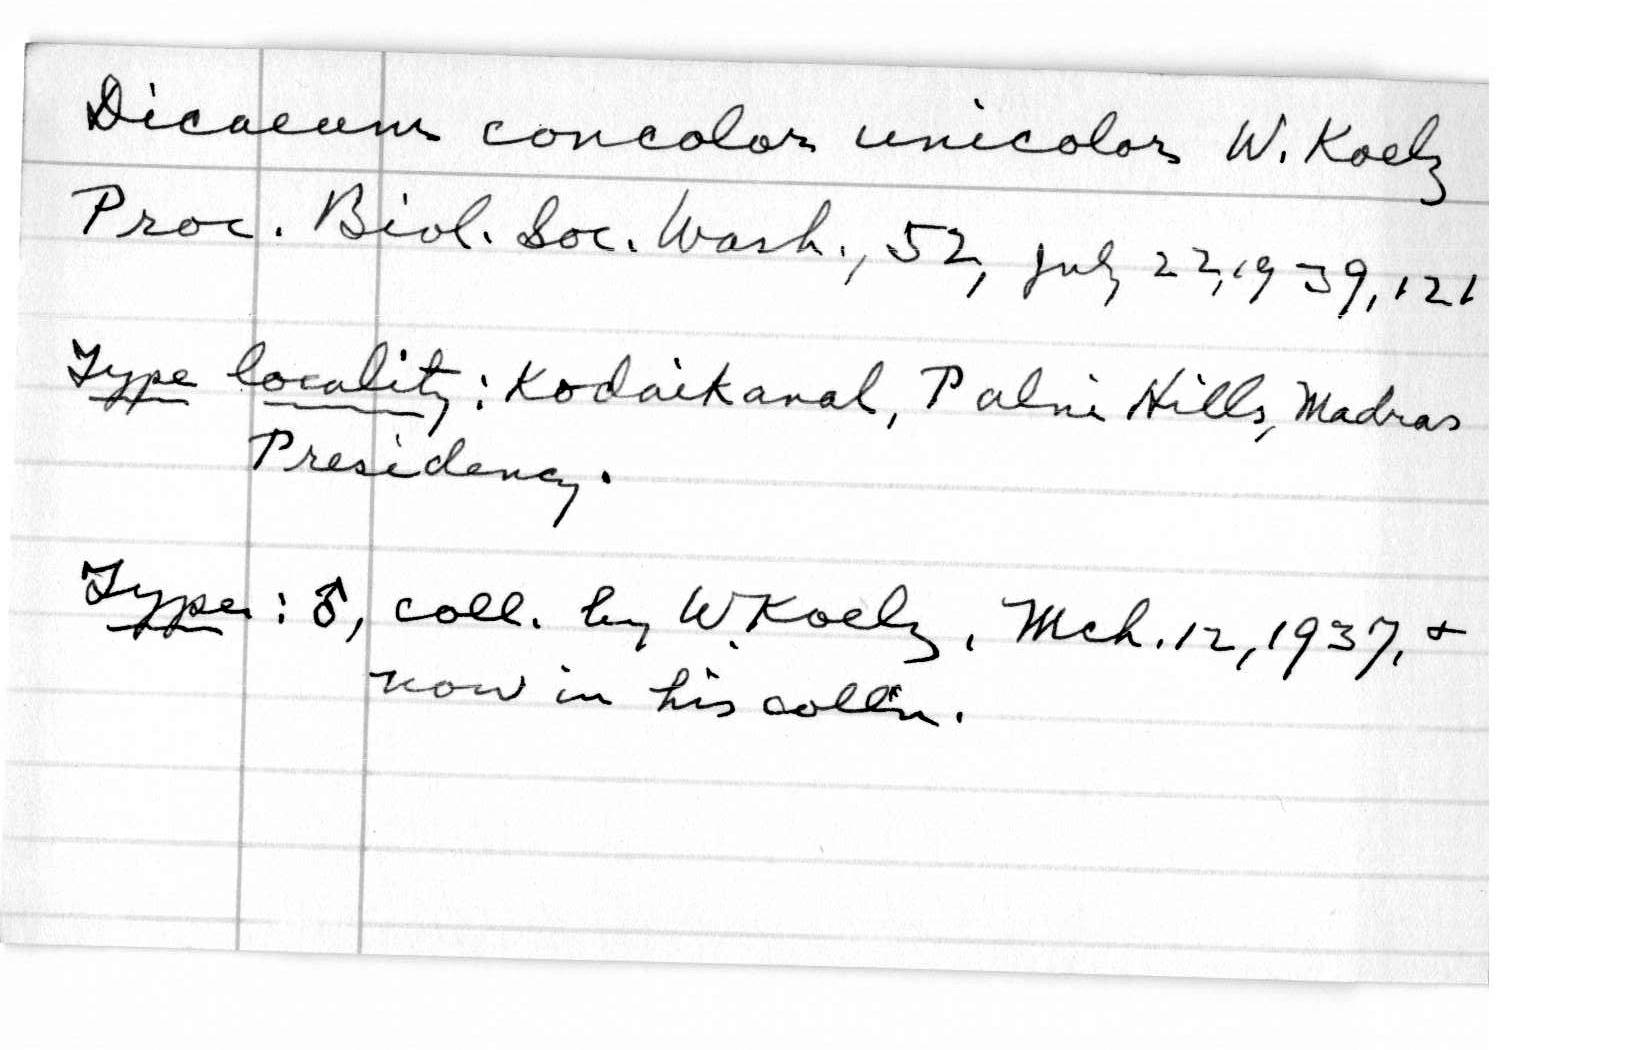 Dicaeum concolor unicolor W. Koelz
Proc. Biol. Soc. Wash., 52, July 22, 1939, 121
Type locality: Kodaikanal, Palni Hills, Madras
Presidency.
Type: ♂, coll. by W. Koelz, Mch. 12, 1937, &
now in his coll'n.